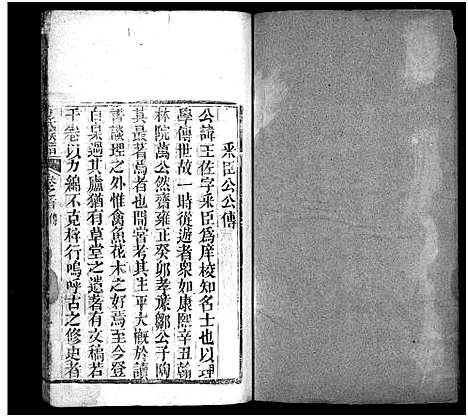 乘臣公公傳
公諱王佐字乘臣爲庠校知名士也以理
學傳世故一時從遊者衆如康熙辛丑翰
林院萬公然齋雍正癸卯孝豫鄒公子陶
其最著焉者也間嘗考其生平大槪於讀
書談理之外惟禽魚花木之好焉至今登
自杲過其廬猶有草堂之遺者有文稿若
干卷以力綿不克梓行嗚呼古之修史者